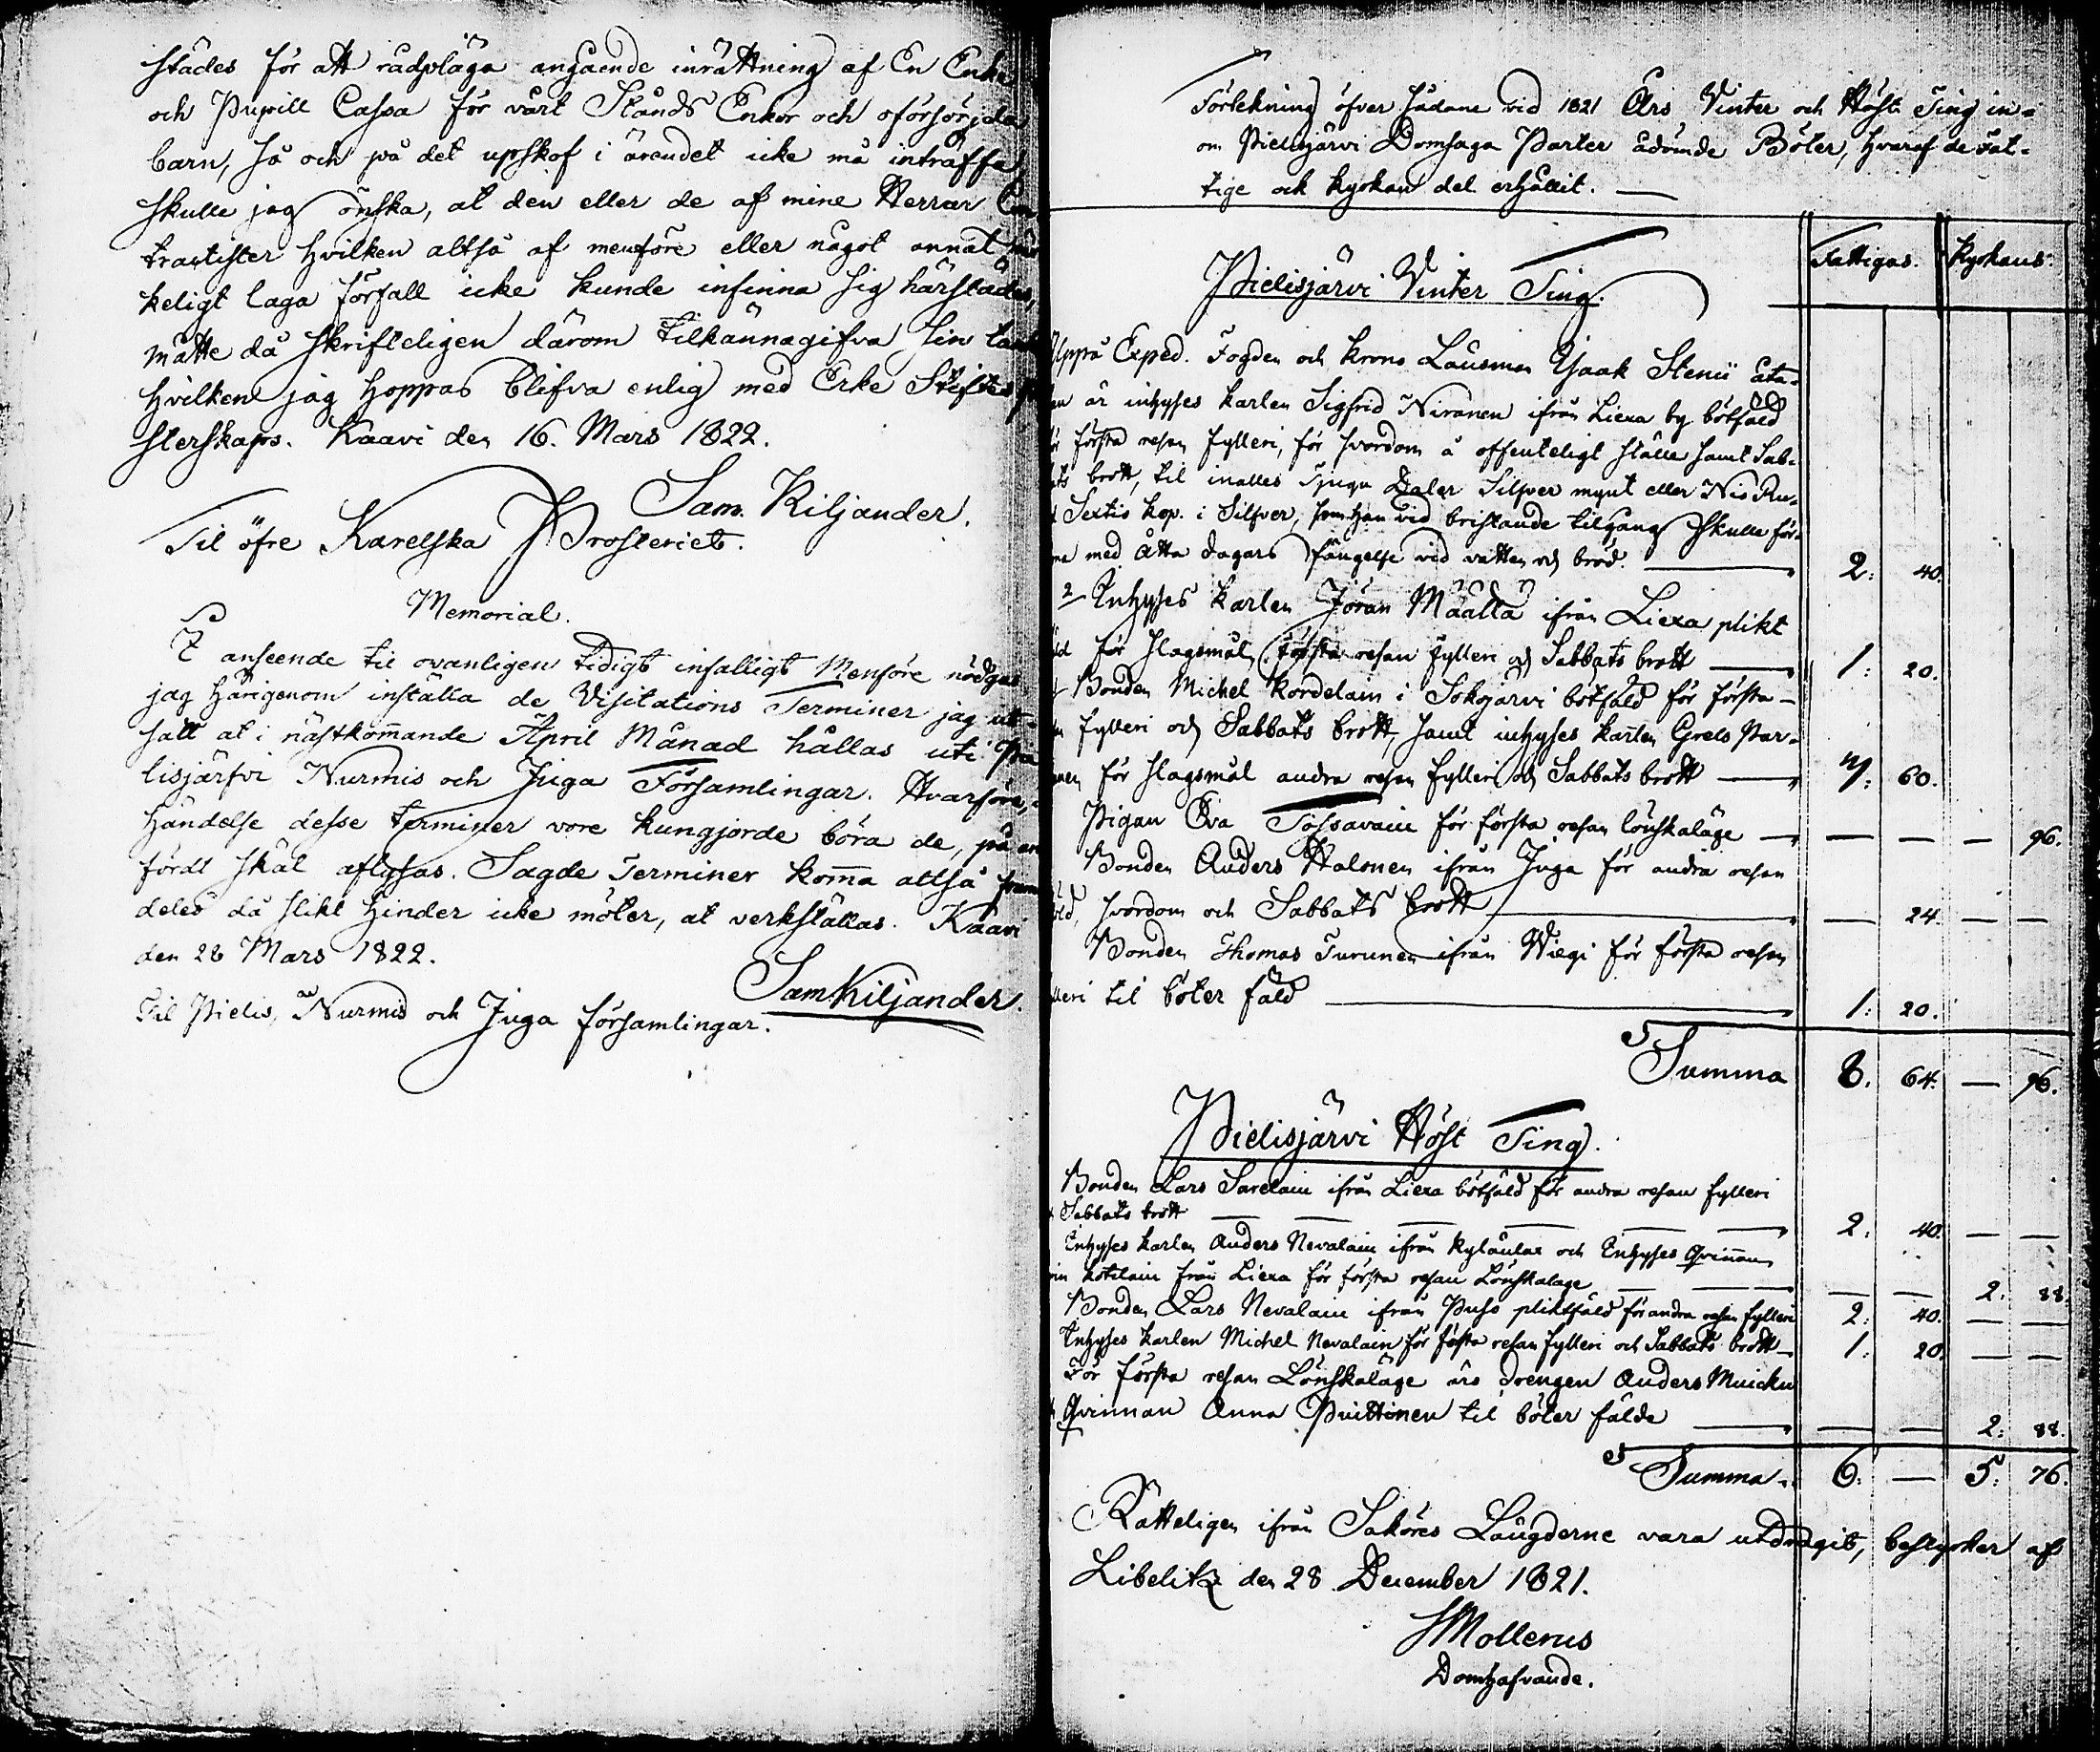 städes för att rådpläga angående inrättning af En Enke
och Pupill Cassa för vårt Stånds Enkor och oförsörjda
barn, så och på det upskof i ärendet icke må inträffa,
skulle jag önska, at den eller de af mine Herrar Con
tractister hvilken altså af menföre eller något annat
keligt laga förfall icke kunde infinna sig härstädes,
måtte då skrifteligen därom tilkännagifva sin
hvilken jag hoppas blifva enlig med Erke Stiftes
sterskaps. Kaavi den 16. Mars 1822.
Sam. Kiljander.
Til öfre Karelska Prosteriet.
Memorial.
I anseende til ovanligen tidigt infalligt Menföre nödgas
jag härigenom inställa de Visitations Terminer jag ut-
satt at i nästkom̄ande April Månad hållas uti
lisjärfvi Nurmis och Juga Församlingar. Hvarföre,
händelse desse terminer vore kungjorde böra de, på an
fördt skäl aflysas. Sagde Terminer kom̄a altså fram
deles då slikt hinder icke möter, at verkställas. Kaavi
den 28 Mars 1822.
Sam Kiljander.
Til Pielis, Nurmis och Juga församlingar.
Förtekning öfver sådane vid 1821 Års Vinter och Höst Ting in-
om Pielisjärvi Domsaga Parter ådömde Böter, hvaraf de Fat-
tige och kyrkan del erhållit.
Fattigas. Kyrkans.
Pielisjärvi Vinter Ting.
Uppå Exped. Fogden och Krono Länsman Isaak Stenii åta-
an är inhyses karlen Sigfrid Niranen ifrån Liexa by bötfäld
för första resan fylleri, för svordom å offenteligt ställe samt Sab-
ats brott, til inalles Tjugu Daler Silfver mynt eller Nio Ru-
Sextio kop. i Silfver, som han vid bristande tilgång skulle för-
na med åtta dagars fängelse vid vatten och bröd. 2: 40.
2 Inhyses karlen Jöran Määttä ifrån Liexa plikt
ld för slagsmål, första resan fylleri och Sabbats brott 1: 20.
Bonden Michel Kordelain i Sokojärvi bötfäld för första
n fylleri och Sabbats brott, samt inhyses karlen Grels Par-
nen för slagsmål andra resan fylleri och Sabbats brott 3: 60.
Pigan Eva Tossavain för första resan lönskaläge — — — 96.
Bonden Anders Halonen ifrån Juga för andra resan
svordom och Sabbats brott — 24. — —
Bonden Thomas Turunen ifrån Wiegi för första resan
lleri til böter fäld 1: 20.
Summa 8. 64. — 96.
Pielisjärvi Höst Ting.
Bonden Lars Sarelain ifrån Liexa bötfäld för andra resan fylleri
Sabbats brott 2: 40. — —
Inhyses karlen Anders Nevalain ifrån Kylänlax och Inhyses Qvin̄an
Kotilain från Liexa för första resan Lönskaläge — — 2: 88.
Bonden Lars Nevalain ifrån Puso pliktfäld för andra resan fylleri 2: 40. — —
Inhyses karlen Michel Nevalain för första resan fylleri och Sabbats brott 1: 20. — —
För första resan Lönskaläge äro drengen Anders Muicku
Qvinnan Anna Puittinen til böter fälde — — 2: 88.
Summa 6: — 5: 76.
Rätteligen ifrån Saköres Längderne vara utdragit, bestyrker af
Libelitz den 28 December 1821.
Mollerus
Domhafvande.